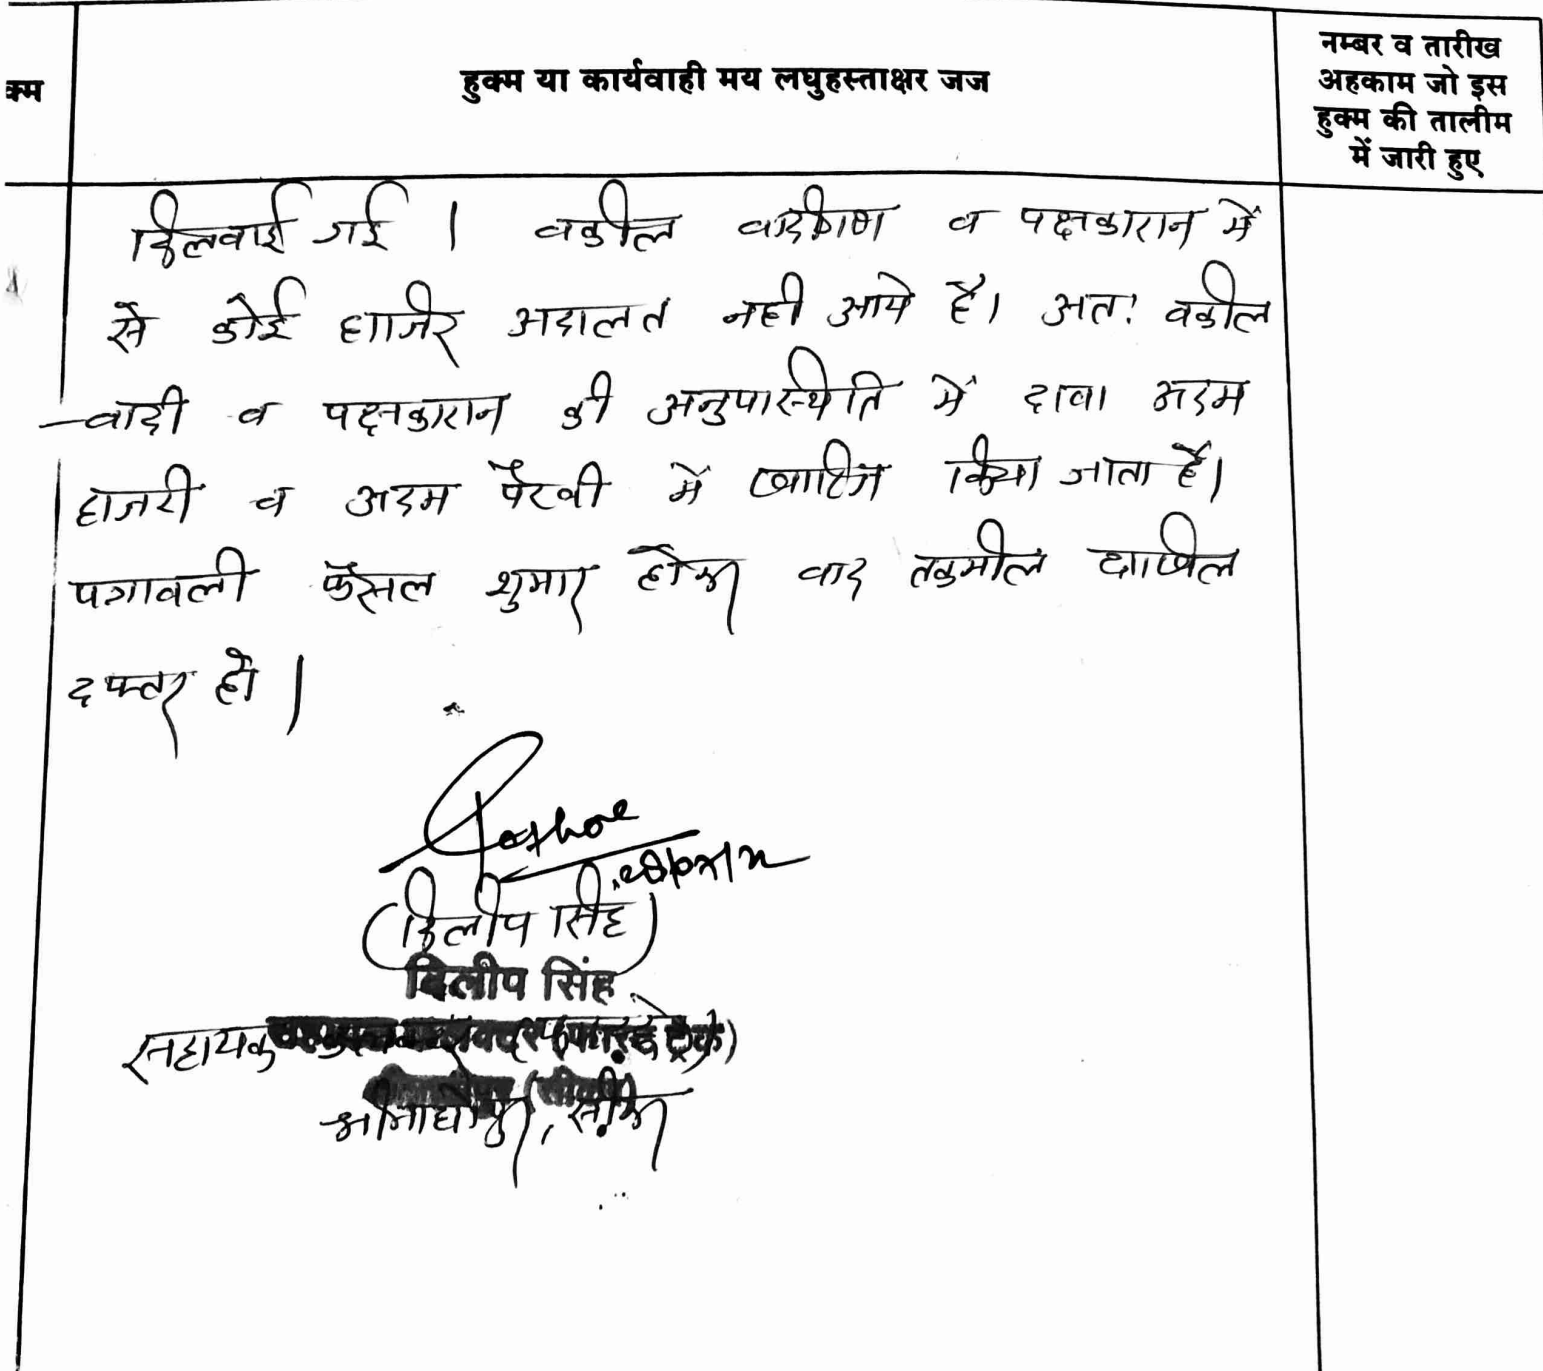 क्म
हुक्म या कार्यवाही मय लघुहस्ताक्षर जज
नम्बर व तारीख
अहकाम जो इस
हुक्म की तालीम
में जारी हुए
दिलवाई गई । वकील वादीगण व पक्षकारान में
से कोई हाजिर अदालत नही आये है। अतः वकील
वादी व पक्षकारान की अनुपस्थिति में दावा अदम
हाजरी व अदम पैरवी में खारिज किया जाता है।
पत्रावली फैसल शुमार होकर वाद तकमील दाखिल
दफ्तर हो ।
(दिलीप सिंह)
दिलीप सिंह
सहायक (फास्ट ट्रेक)
श्रीमाधोपुर, सीकर